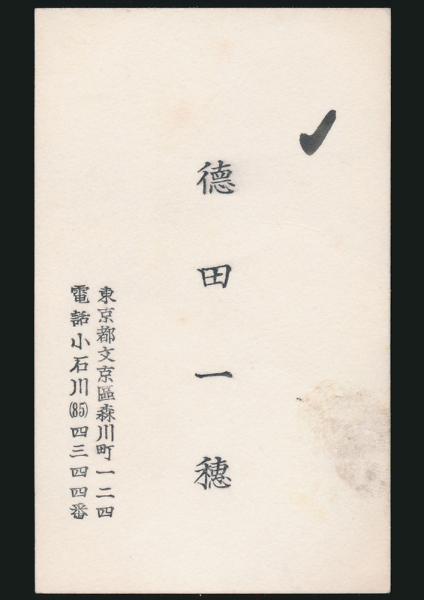 德田一穗
東京都文京區森川町一二四
電話小石川(85)四三四四番